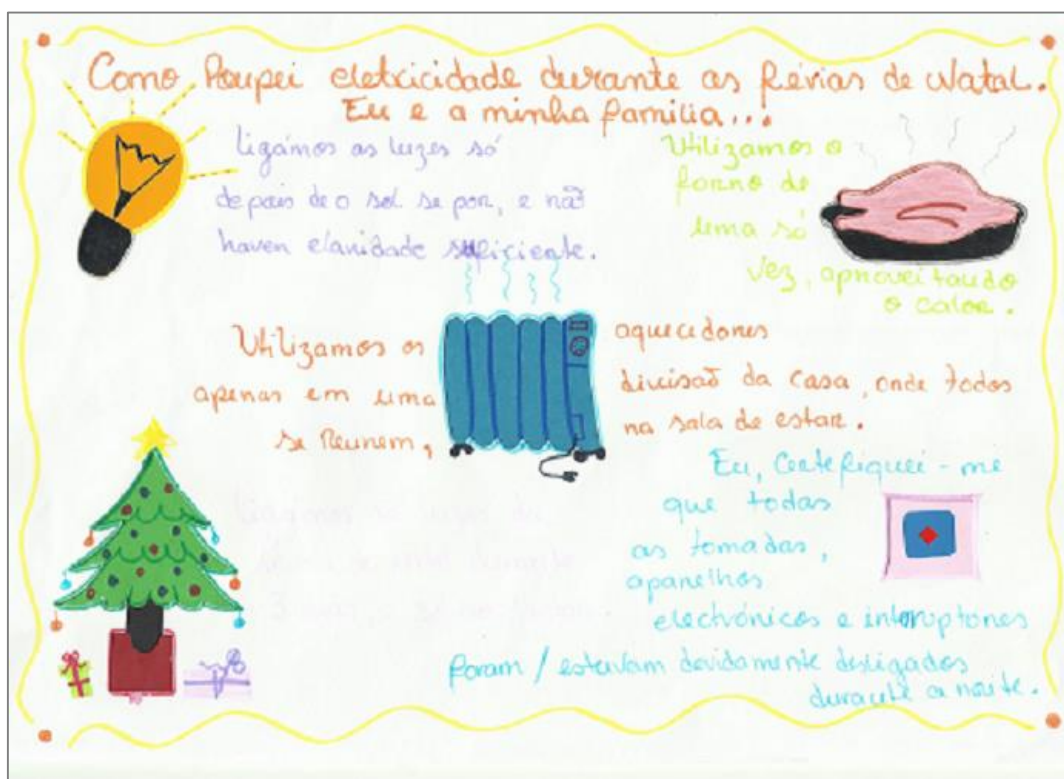 Como Poupei eletricidade durante as férias de Natal.
Eu e a minha família...
ligámos as luzes só
depois de o sol se por, e não
haver claridade suficiente.
Utilizamos o
forno de
uma só
vez, aproveitando
o calor.
Utilizamos os aquecedores
apenas em uma divisão da casa, onde todos
se Reunem, na sala de estar.
Eu, Certefiquei-me
que todas
as tomadas,
aparelhos
electrónicos e interruptores
foram / estavam devidamente desligados
durante a noite.
Ligámos as luzes da
durante
3